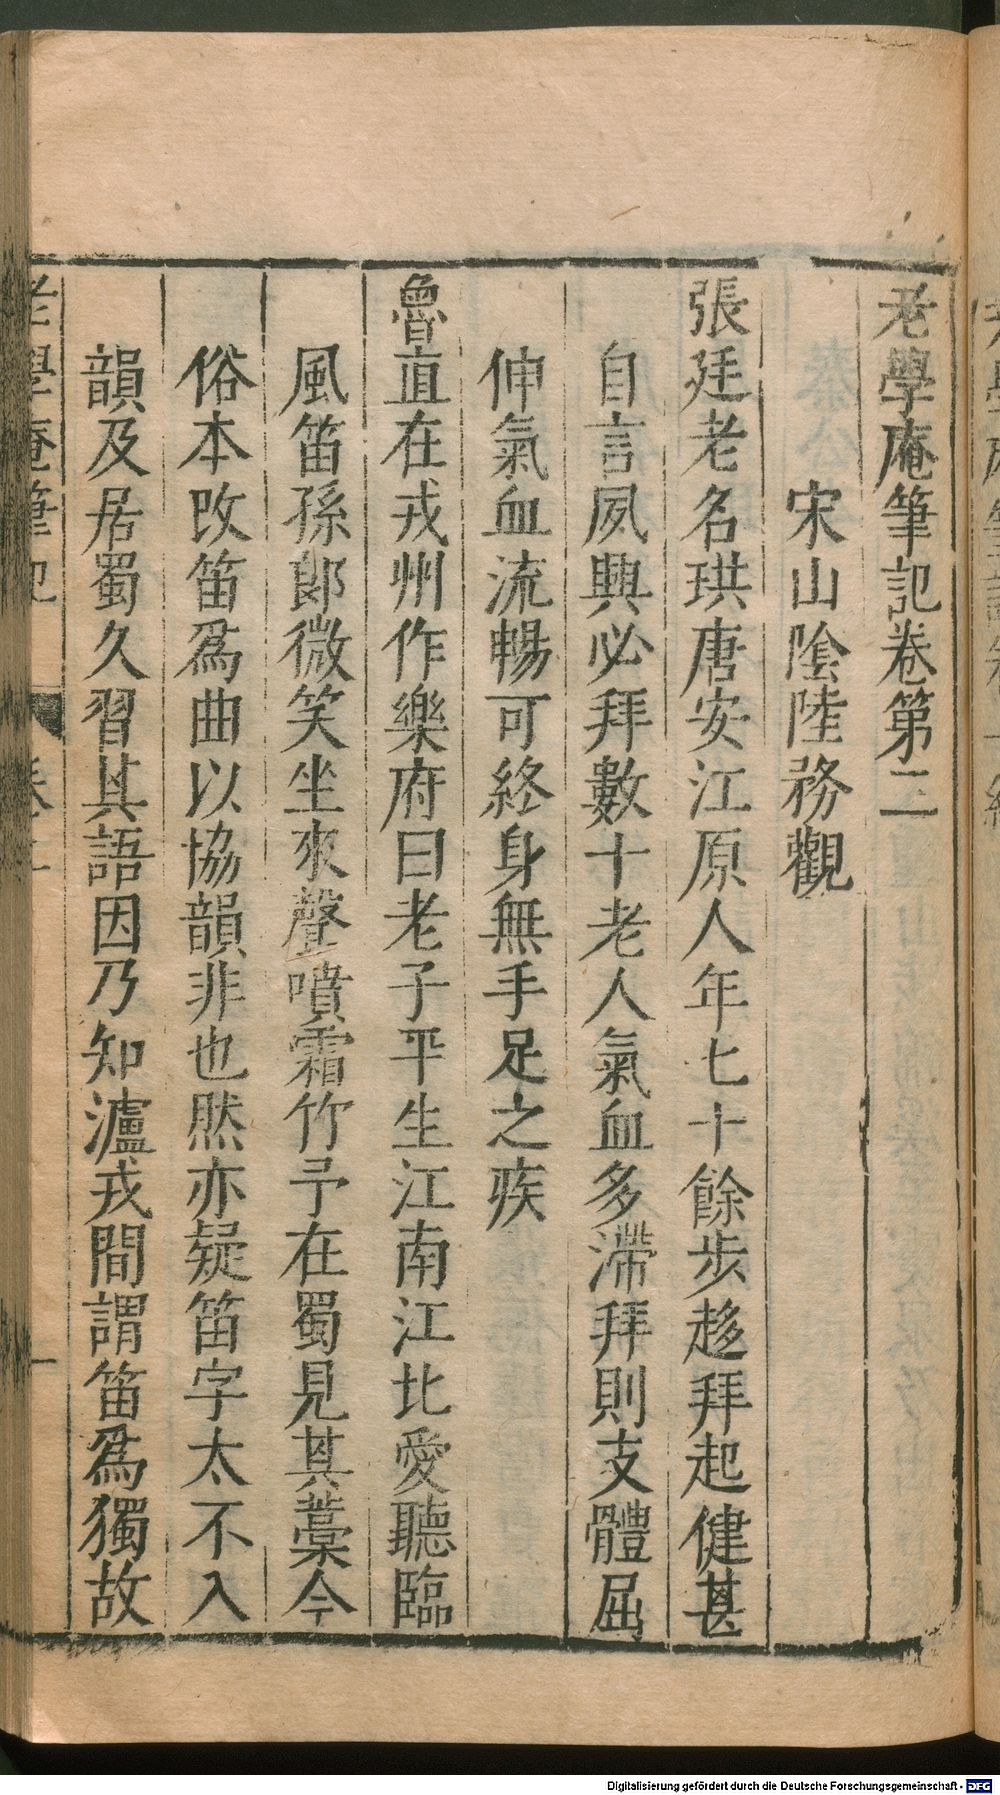 老學庵筆記卷第二
宋山陰陸務觀
張廷老名珙唐安江原人年七十餘步趍拜起健甚
自言夙興必拜數十老人氣血多滯拜則支體屈
伸氣血流暢可終身無手足之疾
魯直在戎州作樂府曰老子平生江南江北愛聽臨
風笛孫郎微笑坐來聲噴霜竹予在蜀見其藁今
俗本改笛爲曲以協韻非也然亦疑笛字太不入
韻及居蜀久習其語因乃知瀘戎間謂笛爲獨故
老學庵筆記 卷二 一
Digitalisierung gefördert durch die Deutsche Forschungsgemeinschaft - DFG